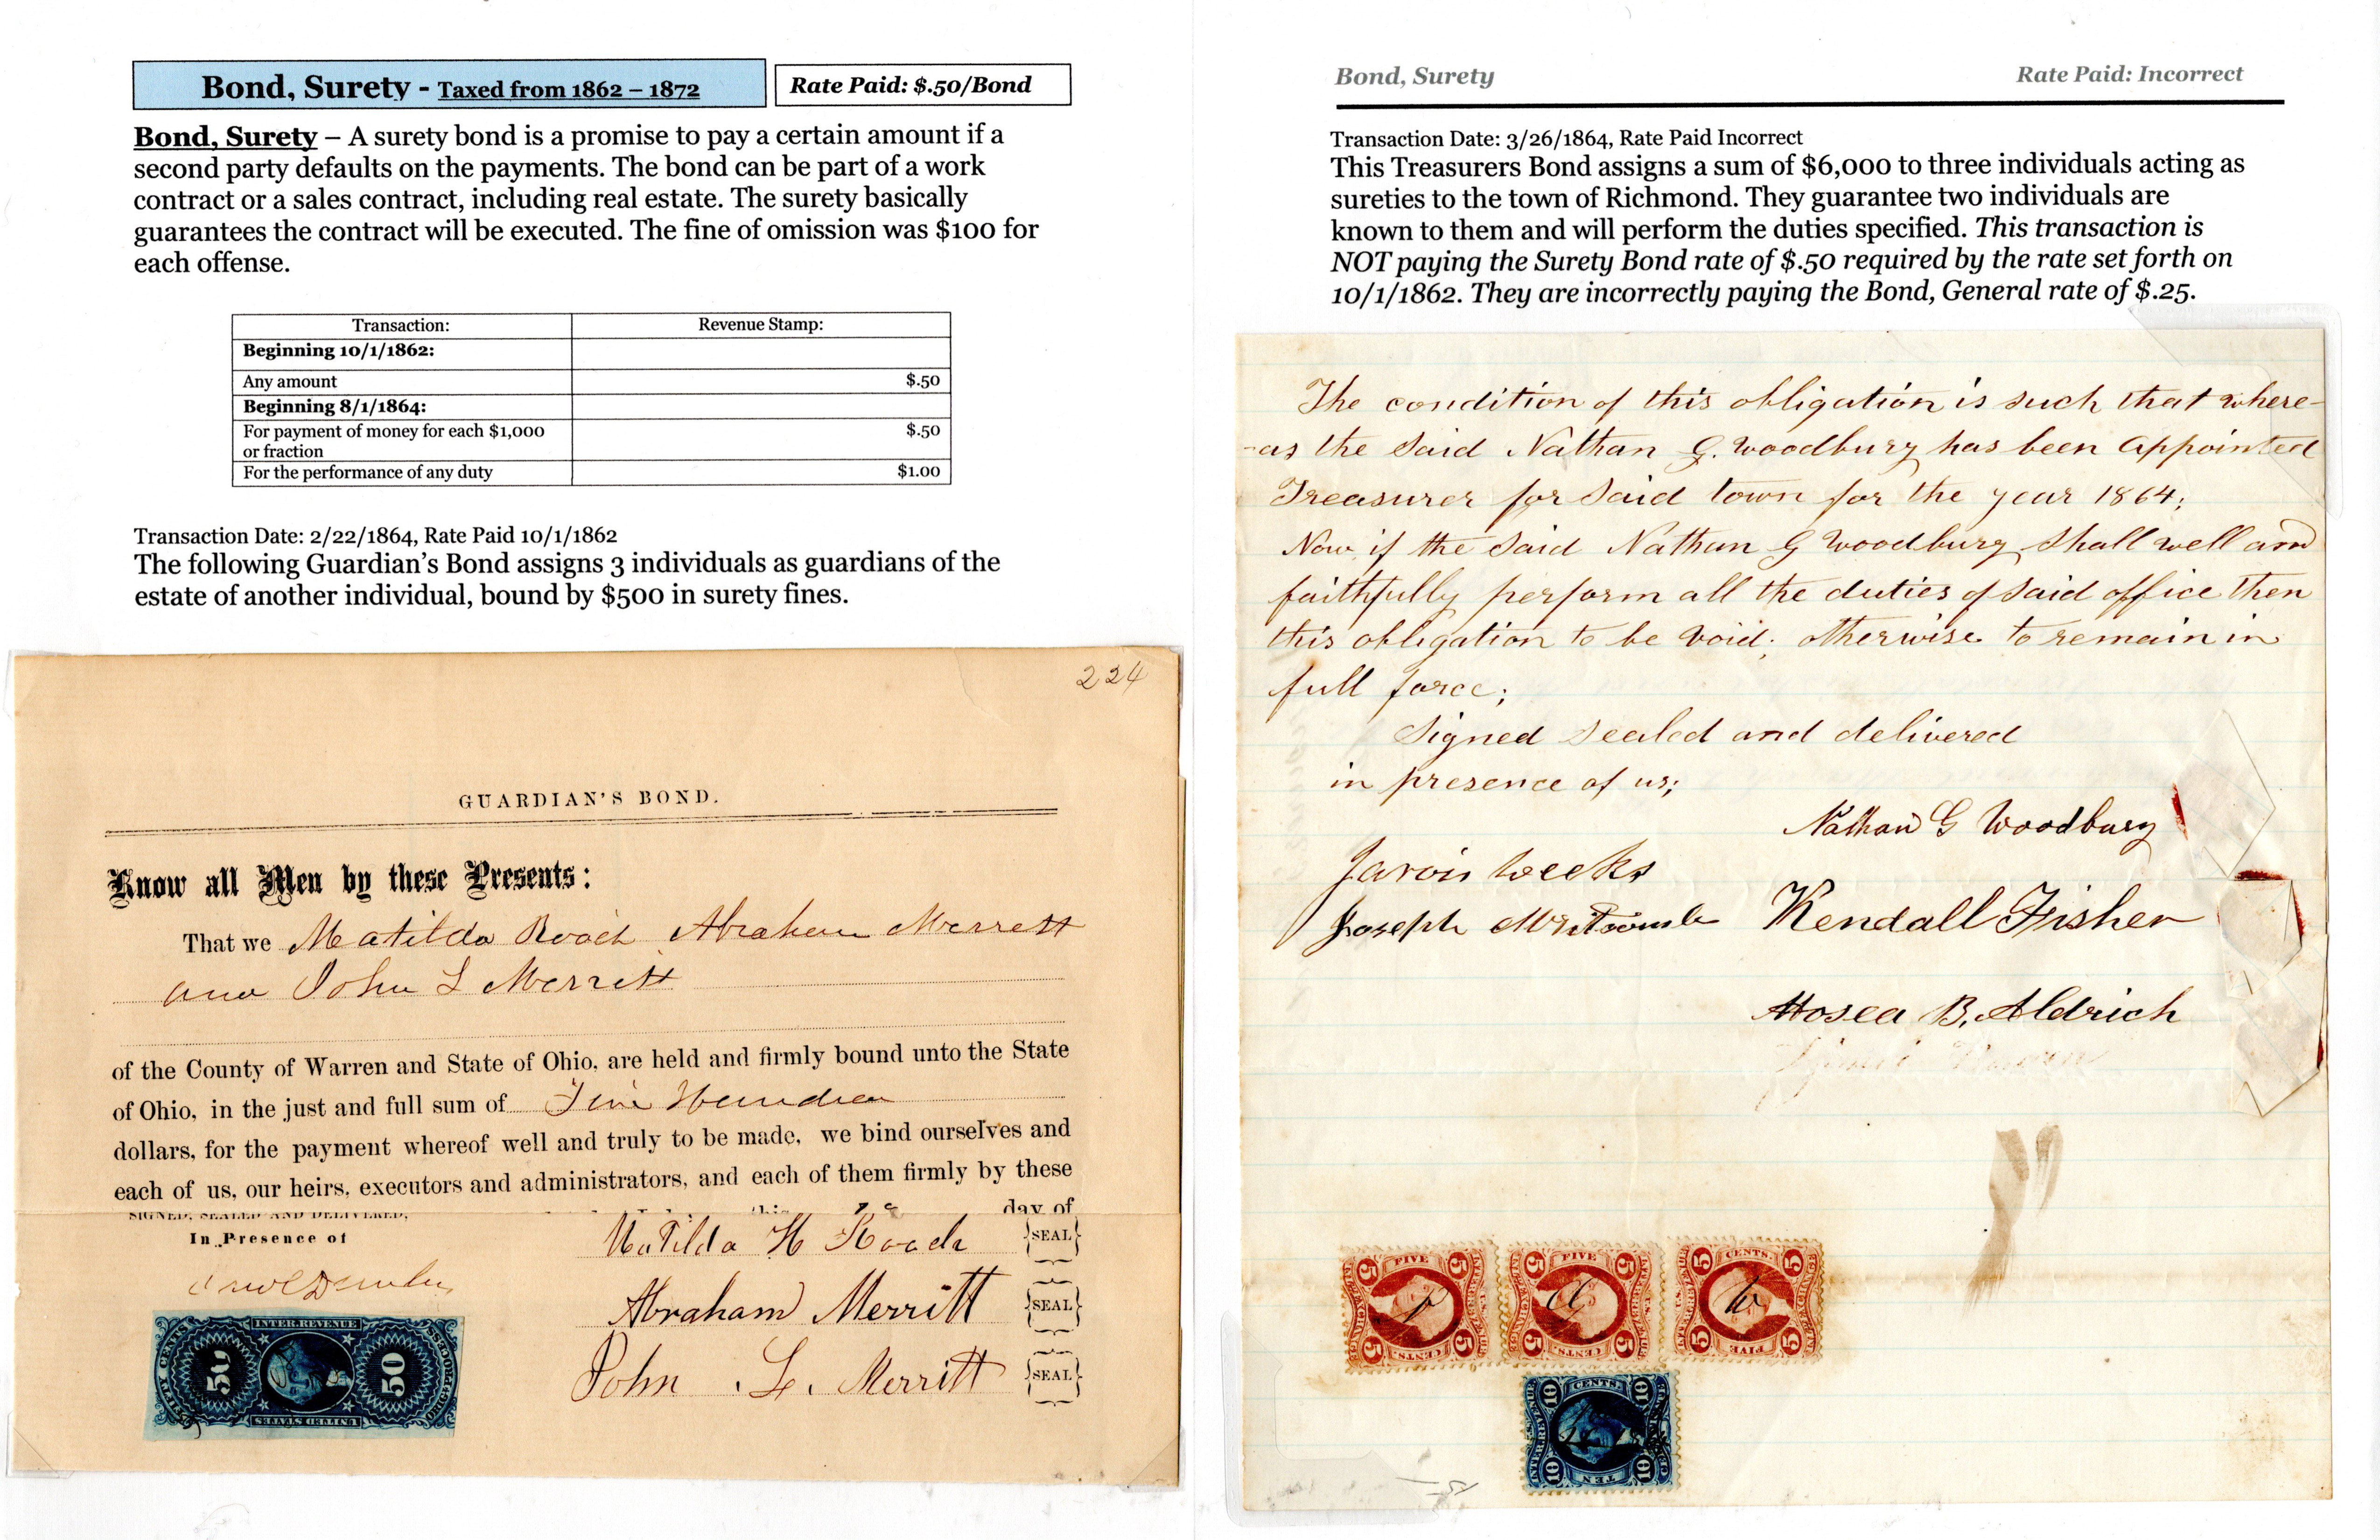 Bond, Surety - Taxed from 1862 – 1872
Rate Paid: $.50/Bond
Bond, Surety – A surety bond is a promise to pay a certain amount if a
second party defaults on the payments. The bond can be part of a work
contract or a sales contract, including real estate. The surety basically
guarantees the contract will be executed. The fine of omission was $100 for
each offense.
Transaction: Revenue Stamp:
Beginning 10/1/1862:
Any amount $.50
Beginning 8/1/1864:
For payment of money for each $1,000 $.50
or fraction
For the performance of any duty $1.00
Transaction Date: 2/22/1864, Rate Paid 10/1/1862
The following Guardian's Bond assigns 3 individuals as guardians of the
estate of another individual, bound by $500 in surety fines.
224
GUARDIAN'S BOND.
Know all Men by these Presents:
That we Matilda Roach Abraham Merrett
and John L Merritt
of the County of Warren and State of Ohio, are held and firmly bound unto the State
of Ohio, in the just and full sum of Five Hundred
dollars, for the payment whereof well and truly to be made, we bind ourselves and
each of us, our heirs, executors and administrators, and each of them firmly by these
day of
SIGNED, SEALED AND DELIVERED,
In Presence of
Matilda H Roach {SEAL}
Abraham Merritt {SEAL}
John L. Merritt {SEAL}
INTER. REVENUE
FIFTY CENTS
50 50
ORIGINAL PROCESS
UNITED STATES
Bond, Surety
Rate Paid: Incorrect
Transaction Date: 3/26/1864, Rate Paid Incorrect
This Treasurers Bond assigns a sum of $6,000 to three individuals acting as
sureties to the town of Richmond. They guarantee two individuals are
known to them and will perform the duties specified. This transaction is
NOT paying the Surety Bond rate of $.50 required by the rate set forth on
10/1/1862. They are incorrectly paying the Bond, General rate of $.25.
The condition of this obligation is such that where-
-as the said Nathan G. Woodbury has been Appointed
Treasurer for said town for the year 1864;
Now if the said Nathan G Woodbury shall well and
faithfully perform all the duties of said office then
this obligation to be void; otherwise to remain in
full force;
Signed sealed and delivered
in presence of us;
Nathan G Woodbury
Jarvis Weeks
Joseph Whitcomb Kendall Fisher
Hosea B. Aldrich
5 FIVE 5 5 FIVE 5 5 CENTS. 5
5 CENTS. 5 5 CENTS. 5 5 FIVE 5
10 CENTS. 10
INTER. REVENUE
10 TEN 10